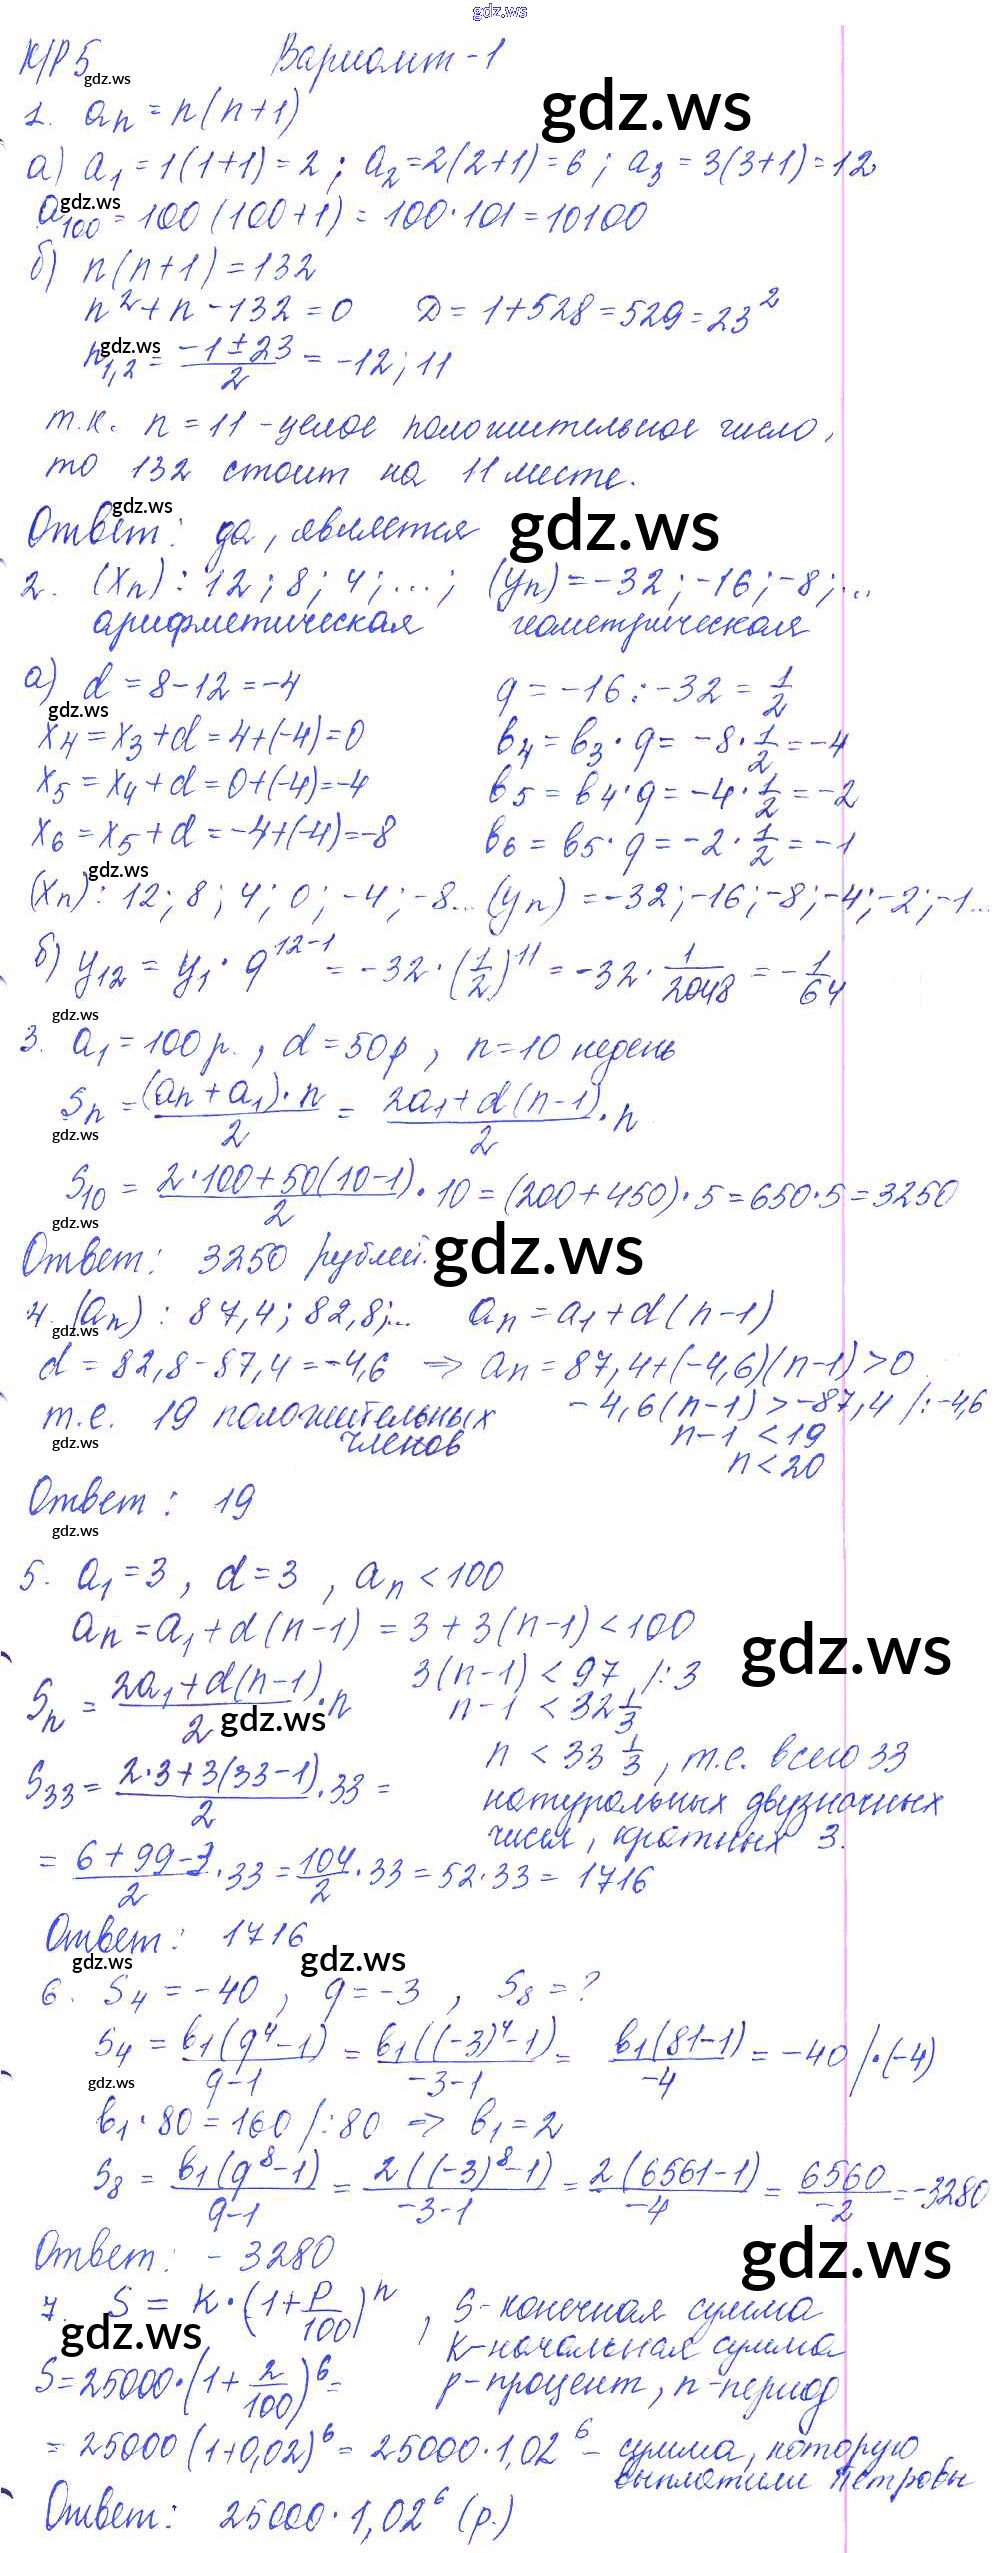 gdz.ws
К/Р 5 Вариант-1
gdz.ws
1. aₙ = n(n+1)
gdz.ws
а) a₁ = 1(1+1) = 2 ; a₂ = 2(2+1) = 6 ; a₃ = 3(3+1) = 12
gdz.ws
a₁₀₀ = 100(100+1) = 100·101 = 10100
б) n(n+1) = 132
n² + n - 132 = 0 D = 1+528 = 529 = 23²
gdz.ws
n₁,₂ = (-1 ± 23)/2 = -12 ; 11
т.к. n = 11 - целое положительное число,
то 132 стоит на 11 месте.
gdz.ws
Ответ: да, является
gdz.ws
2. (xₙ) : 12 ; 8 ; 4 ; ... ; (yₙ) = -32 ; -16 ; -8 ; ...
арифметическая геометрическая
а) d = 8-12 = -4 q = -16 : -32 = 1/2
gdz.ws
x₄ = x₃ + d = 4+(-4) = 0 b₄ = b₃ · q = -8 · 1/2 = -4
x₅ = x₄ + d = 0+(-4) = -4 b₅ = b₄ · q = -4 · 1/2 = -2
x₆ = x₅ + d = -4+(-4) = -8 b₆ = b₅ · q = -2 · 1/2 = -1
gdz.ws
(xₙ) : 12 ; 8 ; 4 ; 0 ; -4 ; -8... (yₙ) = -32 ; -16 ; -8 ; -4 ; -2 ; -1...
б) y₁₂ = y₁ · q¹²⁻¹ = -32 · (1/2)¹¹ = -32 · 1/2048 = -1/64
gdz.ws
3. a₁ = 100 р. , d = 50р , n = 10 недель
Sₙ = (aₙ + a₁)·n/2 = (2a₁ + d(n-1))/2 · n
gdz.ws
S₁₀ = (2·100+50(10-1))/2 · 10 = (200+450)·5 = 650·5 = 3250
gdz.ws
Ответ: 3250 рублей.
gdz.ws
4. (aₙ) : 87,4 ; 82,8 ; ... aₙ = a₁ + d(n-1)
gdz.ws
d = 82,8-87,4 = -4,6 ⇒ aₙ = 87,4+(-4,6)(n-1) > 0
т.е. 19 положительных -4,6(n-1) > -87,4 /: -4,6
членов n-1 < 19
gdz.ws
n < 20
Ответ: 19
gdz.ws
5. a₁ = 3 , d = 3 , aₙ < 100
aₙ = a₁ + d(n-1) = 3 + 3(n-1) < 100
gdz.ws
Sₙ = (2a₁ + d(n-1))/2 · n 3(n-1) < 97 /: 3
gdz.ws
n-1 < 32 1/3
n < 33 1/3 , т.е. всего 33
S₃₃ = (2·3+3(33-1))/2 · 33 = натуральных двузначных
чисел, кратных 3.
= (6+99-3)/2 · 33 = 104/2 · 33 = 52·33 = 1716
Ответ: 1716
gdz.ws
gdz.ws
6. S₄ = -40 , q = -3 , S₈ = ?
S₄ = b₁(q⁴-1)/(q-1) = b₁((-3)⁴-1)/(-3-1) = b₁(81-1)/-4 = -40 /·(-4)
gdz.ws
b₁ · 80 = 160 /: 80 ⇒ b₁ = 2
S₈ = b₁(q⁸-1)/(q-1) = 2((-3)⁸-1)/(-3-1) = 2(6561-1)/-4 = 6560/-2 = -3280
Ответ: -3280
gdz.ws
7. S = K·(1+P/100)ⁿ , S-конечная сумма
gdz.ws
K-начальная сумма
S = 25000·(1+2/100)⁶ = p-процент, n-период
= 25000(1+0,02)⁶ = 25000·1,02⁶ - сумма, которую
выплатили Петровы
Ответ: 25000·1,02⁶ (р.)